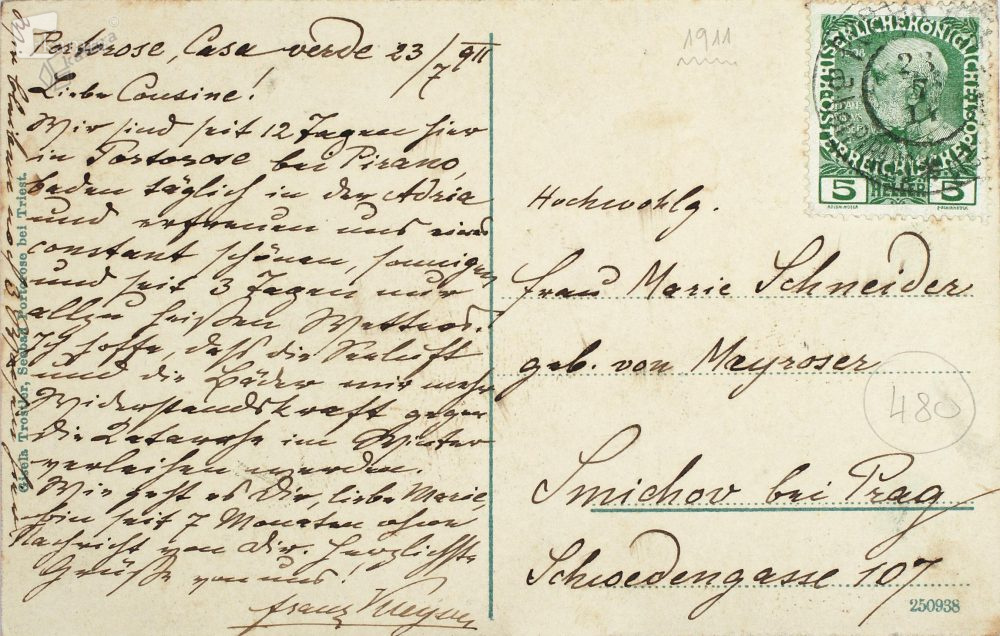 Portorose, Casa verde 23/7 911
Liebe Cousine!
Wir sind seit 12 Tagen hier
in Portorose bei Pirano,
baden täglich in der Adria
und erfreuen uns eines
constant schönen, sonnigen
und seit 3 Tagen nur
allzu heißen Wetters.
Ich hoffe, daß die Seeluft
und die Bäder mir mehr
Widerstandskraft gegen
die Katarrhe im Winter
verleihen werden.
Wie geht es dir, liebe Marie,
bin seit 7 Monaten ohne
Nachricht von dir. Herzlichste
Grüße von uns!
Franz
Gisela Trostler, Seebad Portorose bei Triest.
1911
5 HELLER 5
Hochwohlg.
Frau Marie Schneider
geb. von Mayroser
480
Smichov bei Prag
Schwedengasse 107
250938